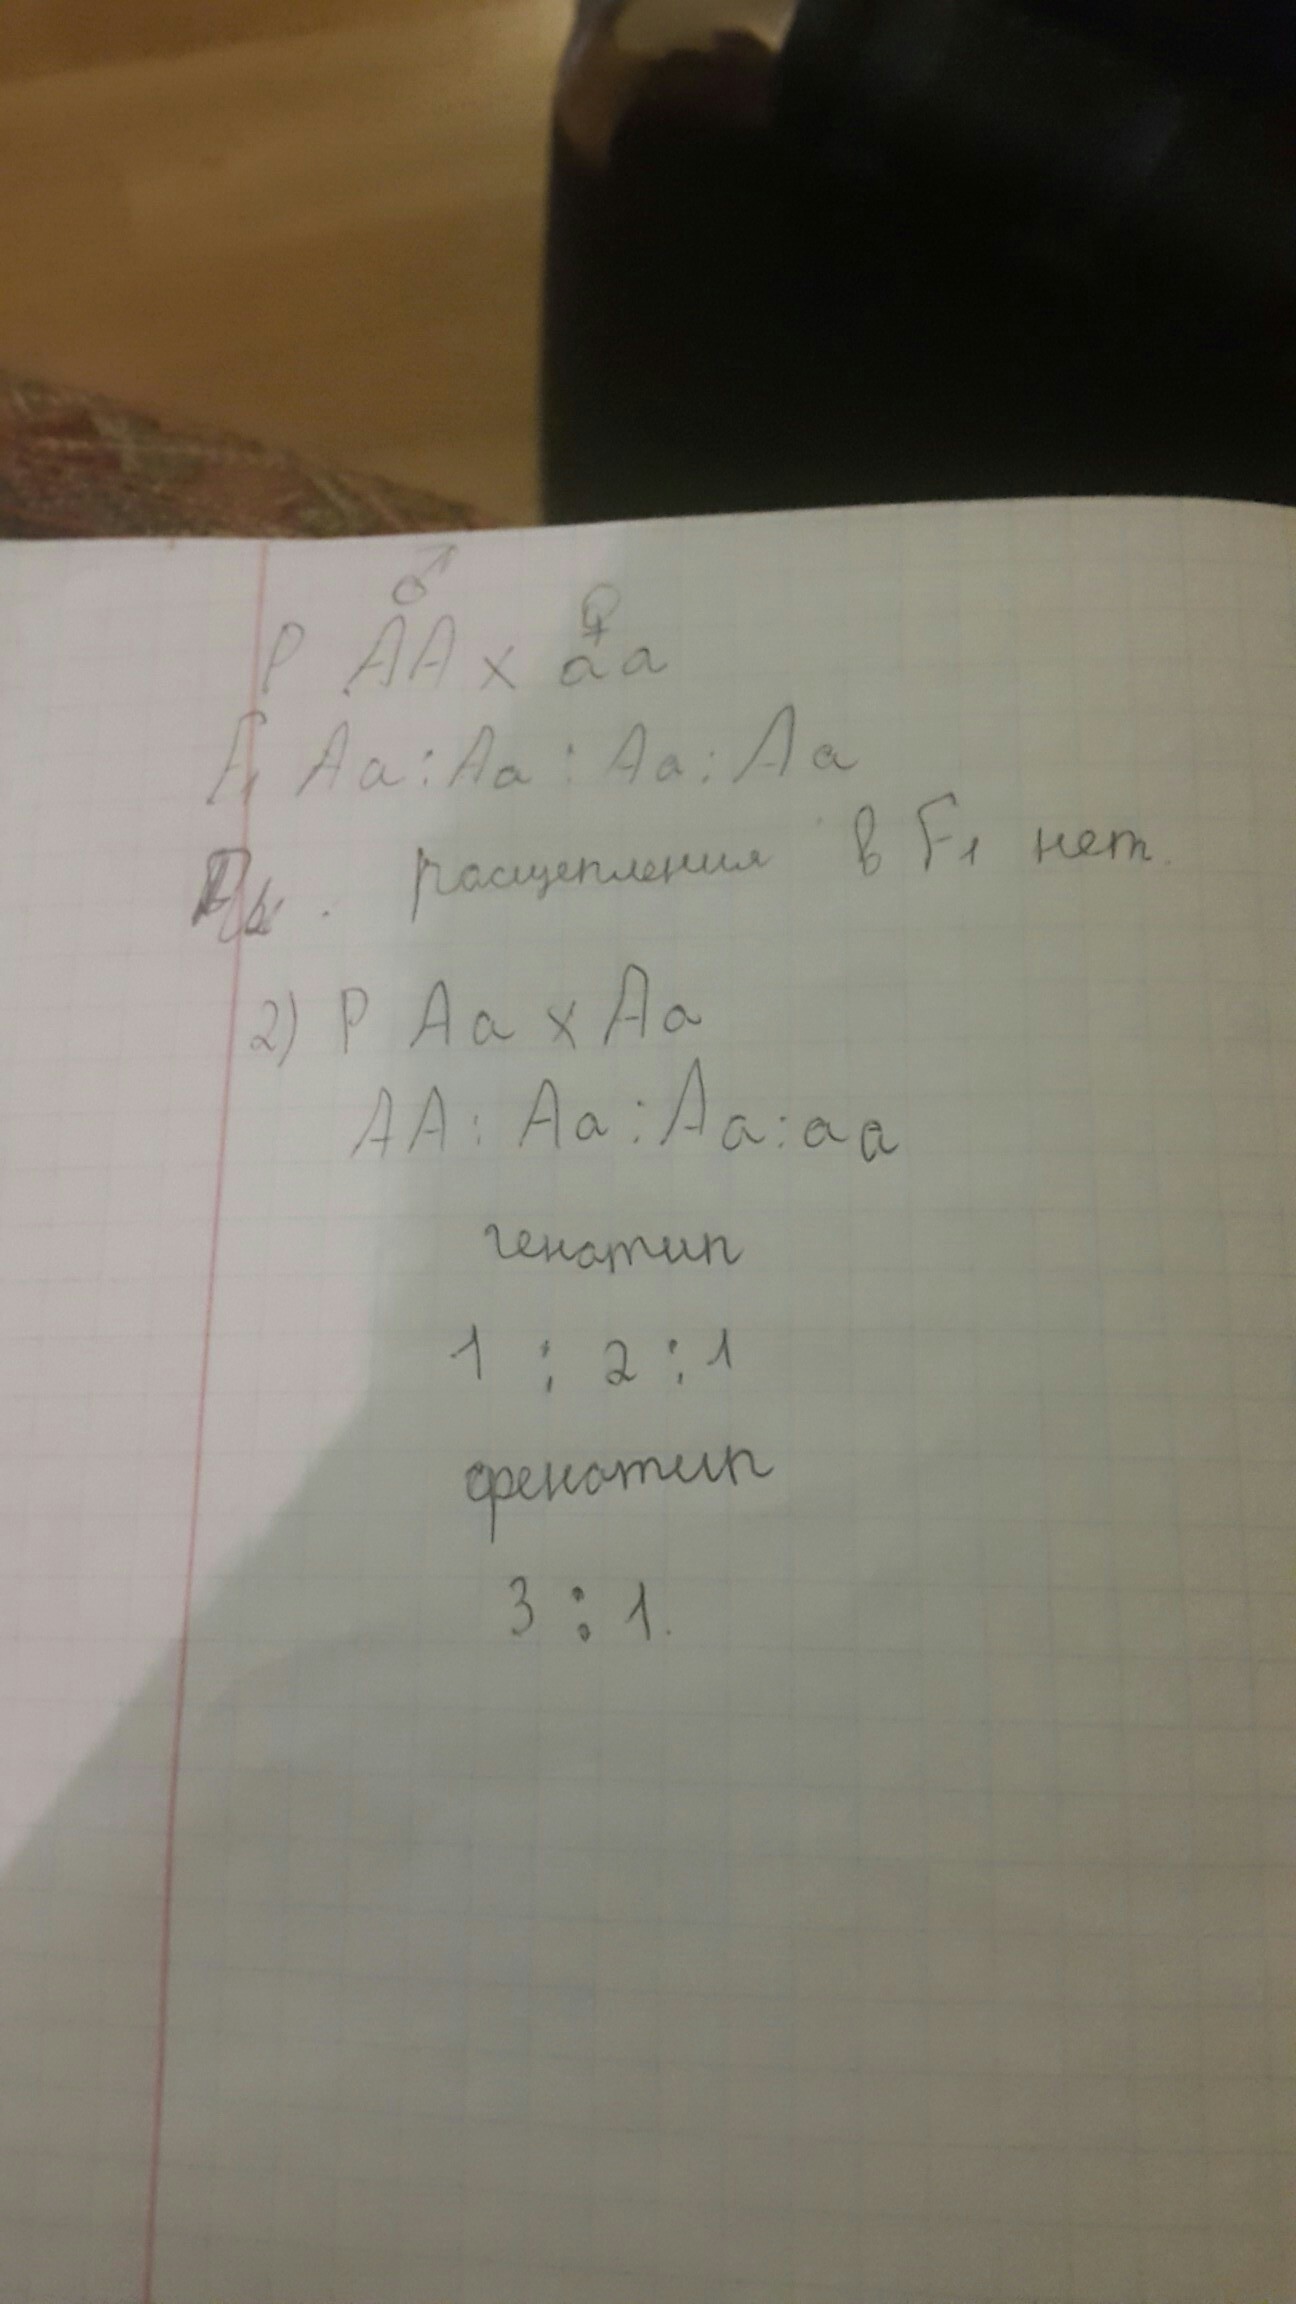 ♂ ♀
P AA x aa
F1 Aa : Aa : Aa : Aa
расщепления в F1 нет.
2) P Aa x Aa
AA : Aa : Aa : aa
генотип
1 : 2 : 1
фенотип
3 : 1.